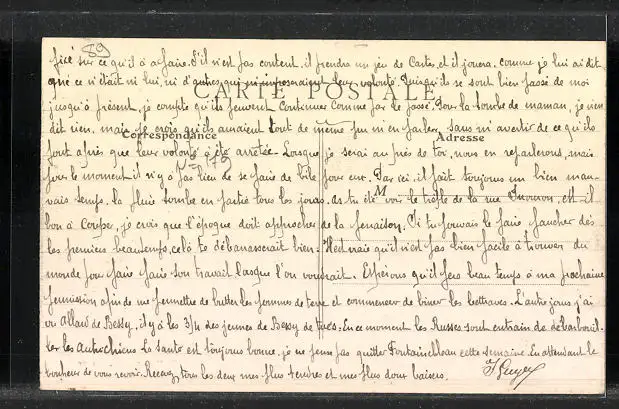 89
fixé sur ce qu'il a à faire. S'il n'est pas content, il prendra un jeu de Cartes et il jouera, comme je lui ai dit
que ce n'était ni lui, ni d'autres qui m'imposeraient leur volonté. Puisqu'ils se sont bien passé de moi
CARTE POSTALE
jusqu'à présent, je compte qu'ils peuvent continuer comme par le passé. Pour la tombe de maman, je n'en
dit rien, mais je crois qu'ils auraient tout de même pu m'en parler, sans m'avertir de ce qu'ils
Correspondance
Adresse
font après que leur volonté a été arrêtée. Lorsque je serai auprès de toi, nous en reparlerons, mais
pour le moment il n'y a pas lieu de se faire de bile pour eux. Par ici, il fait toujours un bien mau-
M
vais temps, la pluie tombe en partie tous les jours. As-tu été voir le trèfle de la rue est-il
bon à couper, je crois que l'époque doit approcher de la fenaison. Si tu pouvais le faire faucher dès
les premiers beautemps, cela te débarrasserait bien. Il est vrai qu'il n'est pas bien facile à trouver du
monde pour faire faire son travail lorsque l'on voudrait. Espérons qu'il fera beau temps à ma prochaine
permission afin de me permettre de butter les pommes de terre et commencer de biner les betteraves. L'autre jour j'ai
vu de Bessy, il y a les 3/4 des jeunes de Bessy de tués. En ce moment les Russes sont entrain de débarbouil-
ler les Autrichiens. La santé est toujours bonne, je ne pense pas quitter Fontainebleau cette semaine. En attendant le
bonheur de vous revoir. Recevez tous les deux mes plus tendres et mes plus doux baisers.